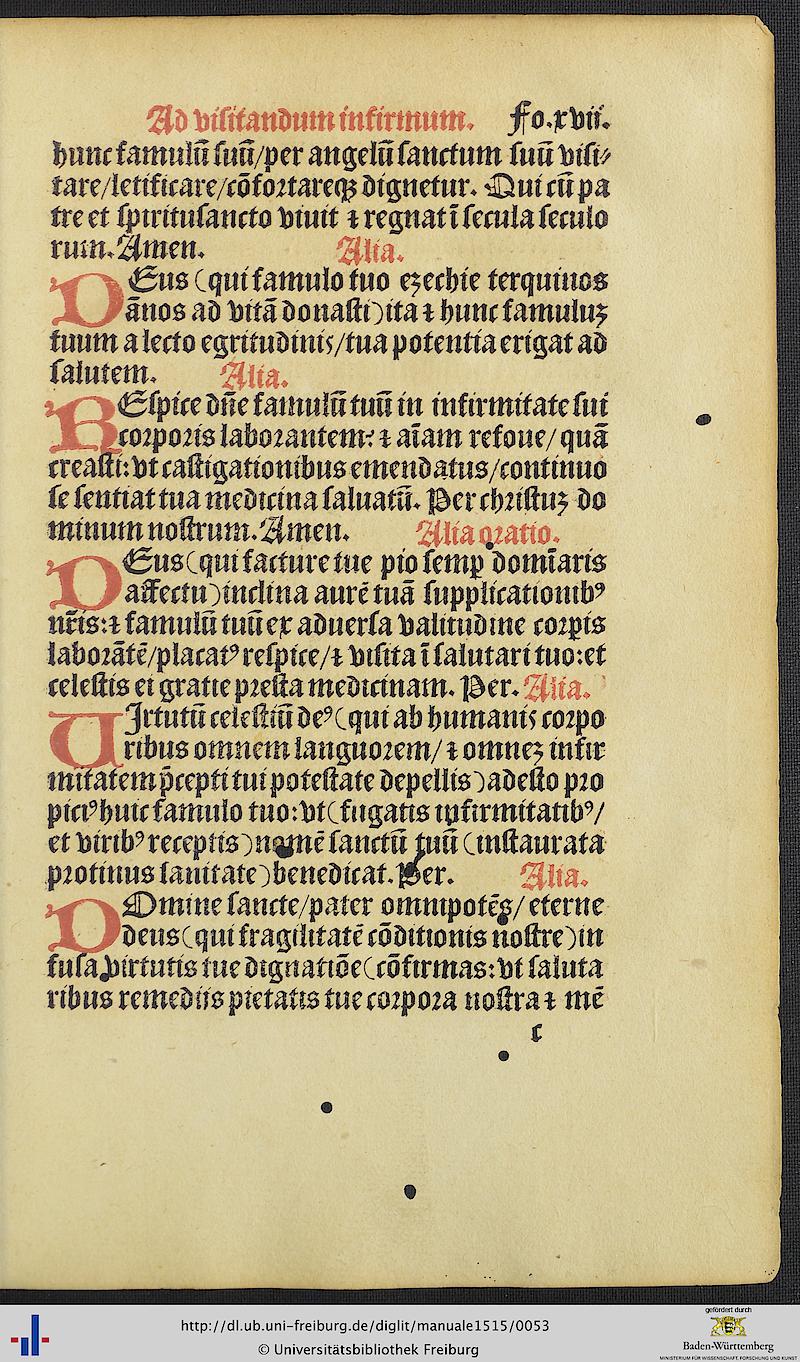 Ad visitandum infirmum. Fo.xvii.
hunc famulū suū/per angelū sanctum suū visi⸗
tare/letificare/cōfortareqꝫ dignetur. Qui cū pa
tre et spiritusancto viuit ⁊ regnat ī secula seculo
rum. Amen. Alia.
DEus (qui famulo tuo ezechie terquinos
ānos ad vitā donasti) ita ⁊ hunc famuluꝫ
tuum a lecto egritudinis/tua potentia erigat ad
salutem. Alia.
REspice dn̄e famulū tuū in infirmitate sui
corporis laborantem: ⁊ aīam refoue/ quā
creasti: vt castigationibus emendatus/continuo
se sentiat tua medicina saluatū. Per christuꝫ do
minum nostrum. Amen. Alia oratio.
DEus (qui facture tue pio semꝑ domīaris
affectu) inclina aurē tuā supplicationibꝰ
nr̄is: ⁊ famulū tuū ex aduersa valitudine corpis
laborātē/placatꝰ respice/⁊ visita ī salutari tuo: et
celestis ei gratie presta medicinam. Per. Alia.
UIrtutū celestiū deꝰ (qui ab humanis corpo
ribus omnem languorem/ ⁊ omneꝫ infir
mitatem p̄cepti tui potestate depellis) adesto pro
piciꝰ huic famulo tuo: vt (fugatis infirmitatibꝰ/
et viribꝰ receptis) nomē sanctū tuū (instaurata
protinus sanitate) benedicat. Per. Alia.
DOmine sancte/pater omnipotēs/ eterne
deus (qui fragilitatē cōditionis nostre) in
fusa virtutis tue dignatiōe (cōfirmas: vt saluta
ribus remedijs pietatis tue corpora nostra ⁊ mē
c
http://dl.ub.uni-freiburg.de/diglit/manuale1515/0053
© Universitätsbibliothek Freiburg
gefördert durch
Baden-Württemberg
MINISTERIUM FÜR WISSENSCHAFT, FORSCHUNG UND KUNST